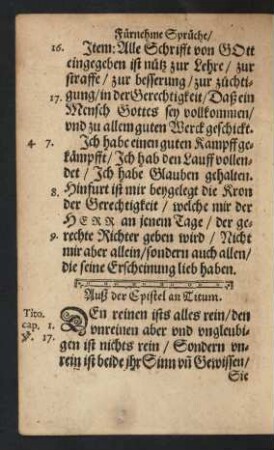 Fürnehme Sprüche/
16. Item: Alle Schrifft von GOtt
eingegeben ist nütz zur Lehre / zur
straffe / zur besserung / zur züchti-
17. gung / in der Gerechtigkeit / Daß ein
Mensch Gottes sey vollkommen /
vnd zu allem guten Werck geschickt.
4 7. Ich habe einen guten Kampff ge-
kämpfft / Ich hab den Lauff vollen-
det / Ich habe Glauben gehalten.
8. Hinfurt ist mir beygelegt die Kron
der Gerechtigkeit / welche mir der
HERR an jenem Tage / der ge-
9. rechte Richter geben wird / Nicht
mir aber allein / sondern auch allen /
die seine Erscheinung lieb haben.
Auß der Epistel an Titum.
Tito. DEn reinen ists alles rein / den
cap. 1. vnreinen aber vnd vngleubi-
℣. 17. gen ist nichts rein / Sondern vn-
rein ist beide jhr Sinn vñ Gewissen /
Sie